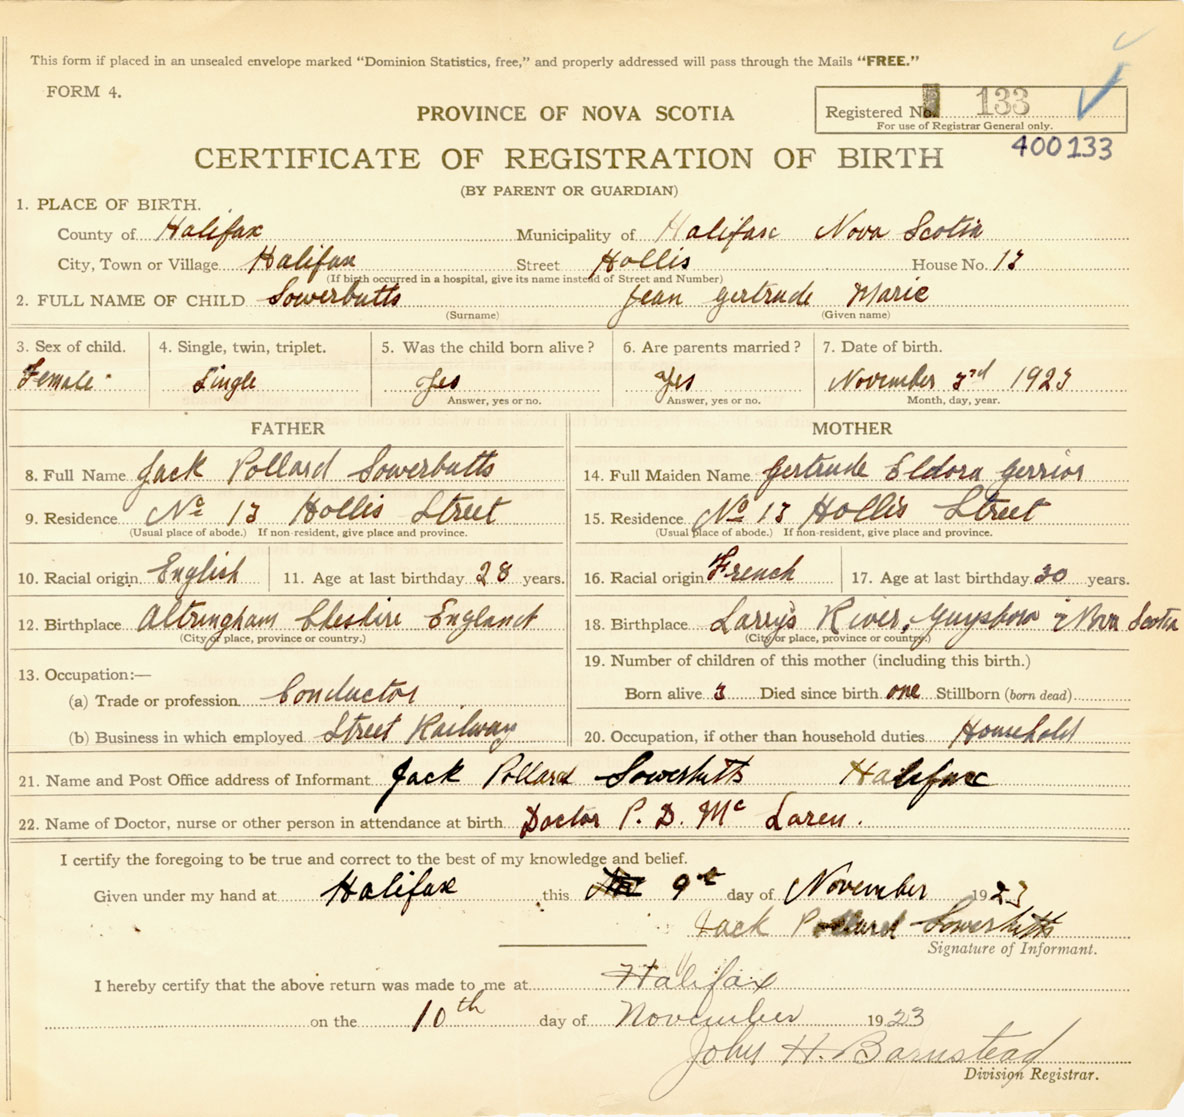 This form if placed in an unsealed envelope marked "Dominion Statistics, free," and properly addressed will pass through the Mails "FREE."
FORM 4.
PROVINCE OF NOVA SCOTIA
Registered No. 133
For use of Registrar General only.
400133
CERTIFICATE OF REGISTRATION OF BIRTH
(BY PARENT OR GUARDIAN)
1. PLACE OF BIRTH.
County of Halifax Municipality of Halifax Nova Scotia
City, Town or Village Halifax Street Hollis House No. 13
(If birth occurred in a hospital, give its name instead of Street and Number)
2. FULL NAME OF CHILD Sowerbutts Jean Gertrude Marie
(Surname) (Given name)
3. Sex of child. 4. Single, twin, triplet. 5. Was the child born alive? 6. Are parents married? 7. Date of birth.
Female Single Yes Yes November 3rd 1923
Answer, yes or no. Answer, yes or no. Month, day, year.
FATHER MOTHER
8. Full Name Jack Pollard Sowerbutts 14. Full Maiden Name Gertrude Eldora Gerrior
9. Residence No 13 Hollis Street 15. Residence No 13 Hollis Street
(Usual place of abode.) If non-resident, give place and province. (Usual place of abode.) If non-resident, give place and province.
10. Racial origin English 11. Age at last birthday 28 years. 16. Racial origin French 17. Age at last birthday 30 years.
12. Birthplace Altringham Cheshire England 18. Birthplace Larry's River, Guysboro Nova Scotia
(City or place, province or country.) (City or place, province or country.)
13. Occupation:— 19. Number of children of this mother (including this birth.)
(a) Trade or profession Conductor Born alive 3 Died since birth one Stillborn (born dead)
(b) Business in which employed Street Railway 20. Occupation, if other than household duties Household
21. Name and Post Office address of Informant Jack Pollard Sowerbutts Halifax
22. Name of Doctor, nurse or other person in attendance at birth Doctor P. D. Mc Laren.
I certify the foregoing to be true and correct to the best of my knowledge and belief.
Given under my hand at Halifax this 9th day of November 1923
Jack Pollard Sowerbutts
Signature of Informant.
I hereby certify that the above return was made to me at Halifax
on the 10th day of November 1923
John H. Barnstead
Division Registrar.